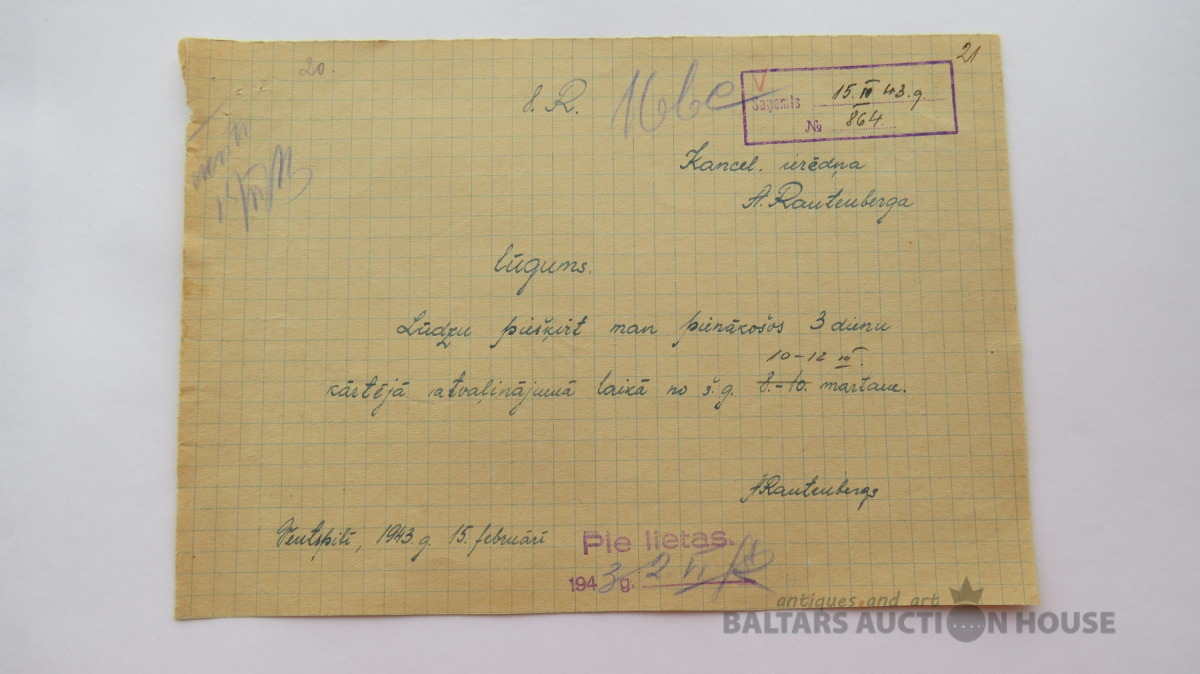 20.
21
8. R.
16bc
V
Saņemts 15.III 43.g.
№ 864.
Kancel. ierēdņa
A. Rautenberga
lūgums.
Lūdzu piešķirt man pienākošos 3 dienu
10-12 III.
kārtējā atvaļinājumā laikā no š.g. 8.-10. martam.
ARautenbergs
Ventspilī, 1943 g. 15. februārī
Pie lietas.
1943 g. 2. VI
antiques and art
BALTARS AUCTION HOUSE